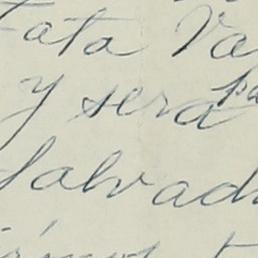 tata Va
y será pa
Salvad